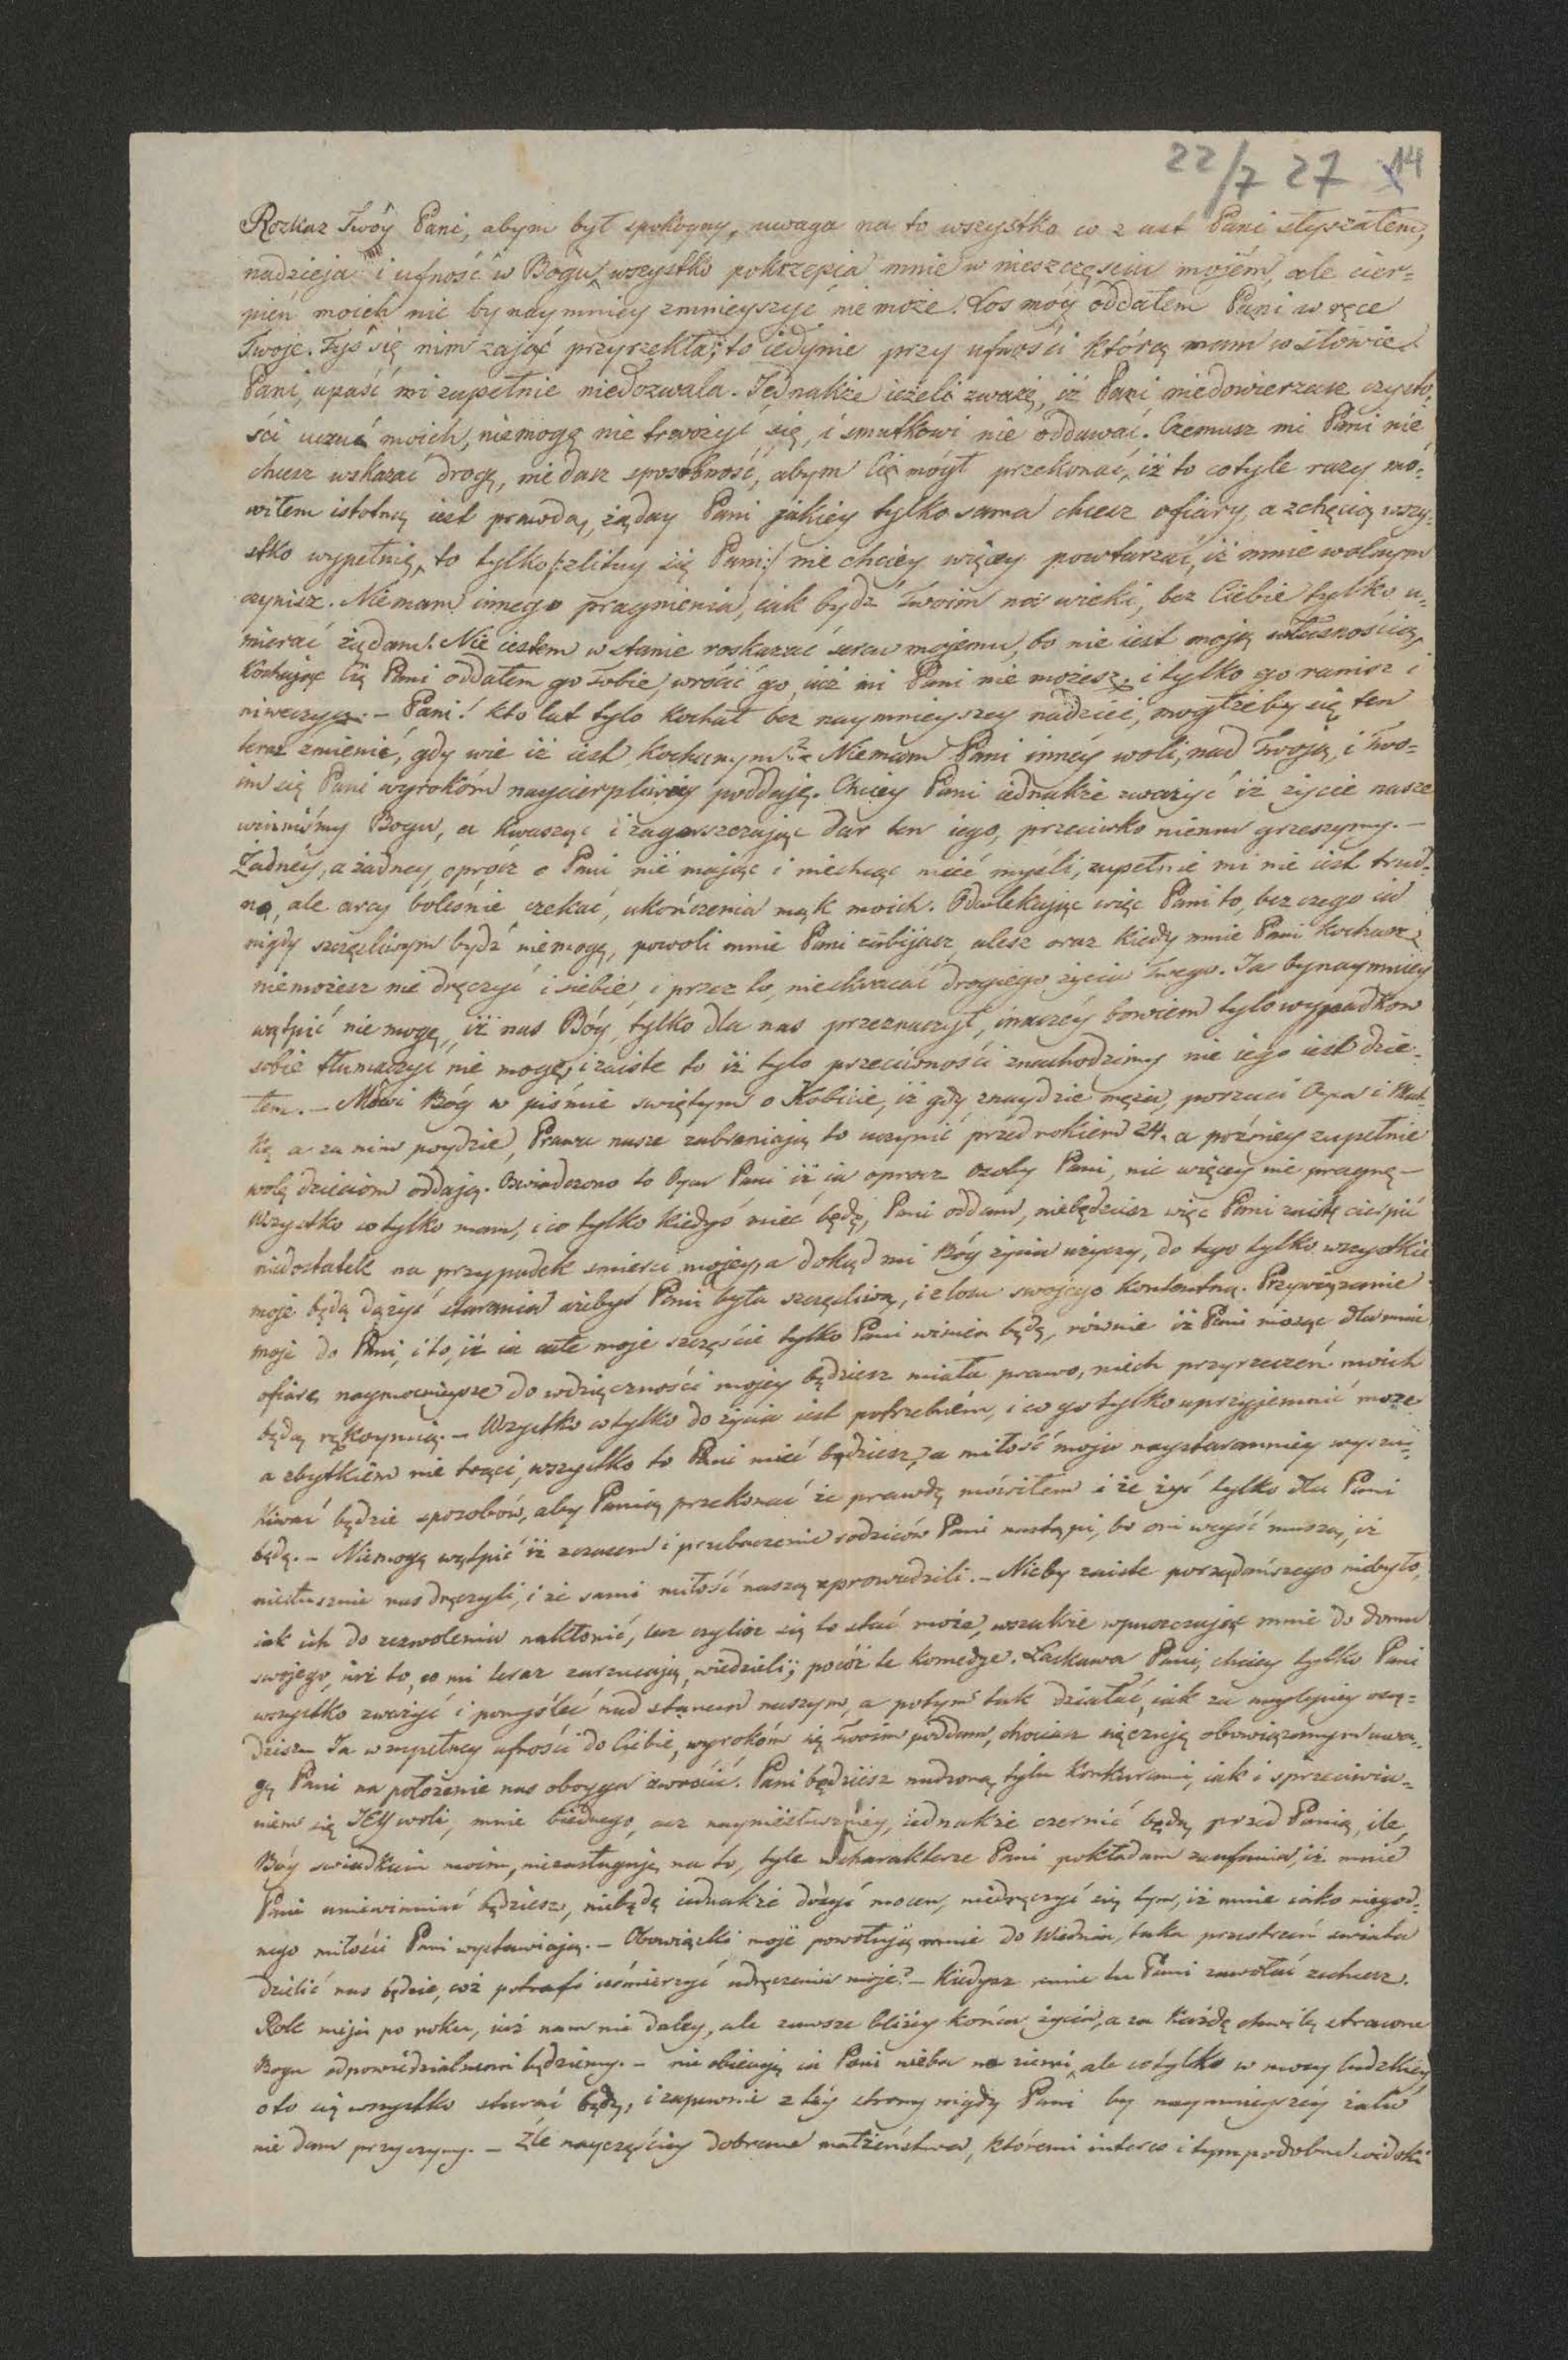 22/7 27 14
Rozkaz Twóy Pani, abym był spokoyny, uwaga na to wszystko co z ust Pani słyszałem,
nadzieja i ufność w Bogu, wszystko pokrzepia mnie w nieszczęściu mojém, ale cier-
pień moich nic bynaymniey zmnieyszyć nie może. Los móy oddałem Pani w ręce
Twoje. Tyś się nim zająć przyrzekła; to iedynie przy ufności którą mam w słowie
Pani, upaść mi zupełnie niedozwala. Jednakże ieżeli zważę, iż Pani niedowierzasz czysto-
ści uczuć moich, niemogę nie trwożyć się, i smutkowi nie oddawać. Czemusz mi Pani nie
chcesz wskazać drogę, nie dasz sposobność, abym Cię mógł przekonać, iż to co tyle razy mó-
wiłem istotną iest prawdą, żąday Pani jakiéy tylko sama chcesz ofiary, a z chęcią wszy-
stko wypełnię, to tylko /:zlituy się Pani:/ nie chciéy więcey powtarzać, iż mnie wolnym
czynisz. Niemam innego pragnienia, iak bydź Twoim na wieki, bez Ciebie tylko u-
mierać żądam! Nie iestem w stanie roskazać sercu mojemu, bo nie iest moją własnością,
Kochając Cię Pani oddałem go Tobie, wrócić go iuż mi Pani nie możesz, i tylko go ranisz i
niweczysz. - Pani! kto lat tylo kochał bez naymnieyszey nadziei, mogłżeby się ten
teraz zmienić, gdy wie iż iest kochanym? - Niemam Pani innéy woli, nad Twoją, i Two-
im się Pani wyrokóm naycierpliwiéy poddaję. Chciey Pani iednakże zważyć iż życie nasze
winniśmy Bogu, a kwasząc i zagorszczając dar ten iego, przeciwko niemu grzeszymy. -
Żadnéy, a żadney, oprócz o Pani nie mając i niechcąc mieć myśli, zupełnie mi nie iest trud-
no, ale arcy boleśnie czekać, ukończenia mąk moich. Odwlekając więc Pani to, bez czego ia
nigdy szczęśliwym bydź niemogę, powoli mnie Pani zabijasz, alesz oraz kiedy mnie Pani kochasz,
niemożesz nie dręczyć i siebie, i przez to, nieskracać drogiego życia Twego. Ja bynaymniéy
wątpić nie mogę, iż nas Bóg, tylko dla nas przeznaczył, inaczéy bowiem tylo wypadkow
sobie tłumaczyć nie mogę, i zaiste to iż tylo przeciwności znachodzimy nie iego iest dzie-
łem. - Mówi Bóg w piśmie świętym o Kobiécie, iż gdy znaydzie męża, porzuci Oyca i Mat-
kę a za nim poydzie, Prawa nasze zabraniają to uczynić przed rokiem 24. a późniey zupełnie
wolę dzieciom oddają. Oświadczono to Oycu Pani iż ia oprocz osoby Pani, nic więcey nie pragnę -
Wszystko co tylko mam, i co tylko kiedyś mieć będę, Pani oddam, niebędziesz więc Pani zaiste cierpić
niedostatek na przypadek śmierci mojey, a dokąd mi Bóg życia użyczy, do tego tylko wszystkie
moje będą dążyć starania ażebyś Pani była szczęśliwą, i z losu swojego kontentną. Przywiązanie
moje do Pani, i to, iż ia całe moje szczęście tylko Pani winien będę, rownie iż Pani niosąc dla mnie
ofiarę naymocnieysze do wdzięczności mojey będziesz miała prawo, niech przyrzeczeń moich
będą rękoymią. - Wszystko co tylko do życia iest potrzebném, i co go tylko uprzyjemnić może
a zbytkiem nie trąci, wszystko to Pani mieć będziesz, a miłość moja naystaranniey wyszu-
kiwać będzie sposobów, aby Panią przekonać że prawdę mówiłem i że żyć tylko dla Pani
będę. - Niemogę wątpić iż z czasem i przebaczenie rodziców Pani nastąpi, bo oni uczuć muszą, iż
niesłusznie nas dręczyli, i że sami miłość naszą sprowadzili. - Nicby zaiste pożądańszego niebyło,
iak ich do zezwolenia nakłonić, lecz czyliż się to stać może, wszakże wpuszczając mnie do domu
swojego, iuż to, co mi teraz zarzucają, wiedzieli; pocóż te komedye. Łaskawa Pani, chciey tylko Pani
wszystko zważyć i pomyśleć nad stanem naszym, a potym tak działać, iak za naylepiey osą-
dzisz - Ja w zupełney ufności do Ciebie, wyrokóm się Twoim poddam, chociasz się czuję obowiązanym uwa-
gę Pani na położenie nas oboyga zwrócić. Pani będziesz nudzoną tylu Konkurami, iak i sprzeciwia-
niem się JEY woli, mnie biednego, acz nayniesłuszniey, iednakże czernić będą przed Panią, ile,
Bóg świadkiem moim, niezasługuję na to, tyle w charakterze Pani pokładam zaufania, iż mnie
Pani uniewinniać będziesz, niebędę iednakże dosyć mocen, niedręczyć się tym, iż mnie iako niegod-
nego miłości Pani wystawiają. - Obowiązki moje powołują mnie do Wiednia, taka przestrzeń świata
dzielić nas będzie, cóż potrafi uśmierzyć udręczenia moje? - Kiedysz mnie tu Pani zawołać zechcesz.
Rok mija po roku, iuż nam nie daley, ale zawsze bliżey końca życia, a za każdę chwilę straconą
Bogu odpowiedzialnemi będziemy. - nie obiecuję ia Pani nieba na ziemi, ale co tylko w mocy ludzkiéy
o to się wszystko starać będę, i zapewnie z téy strony nigdy Pani by naymnieyszéy żalu
nie dam przyczyny. - Źle nayczęściey dobrane małżeństwa, któremi interes i tym podobne widoki